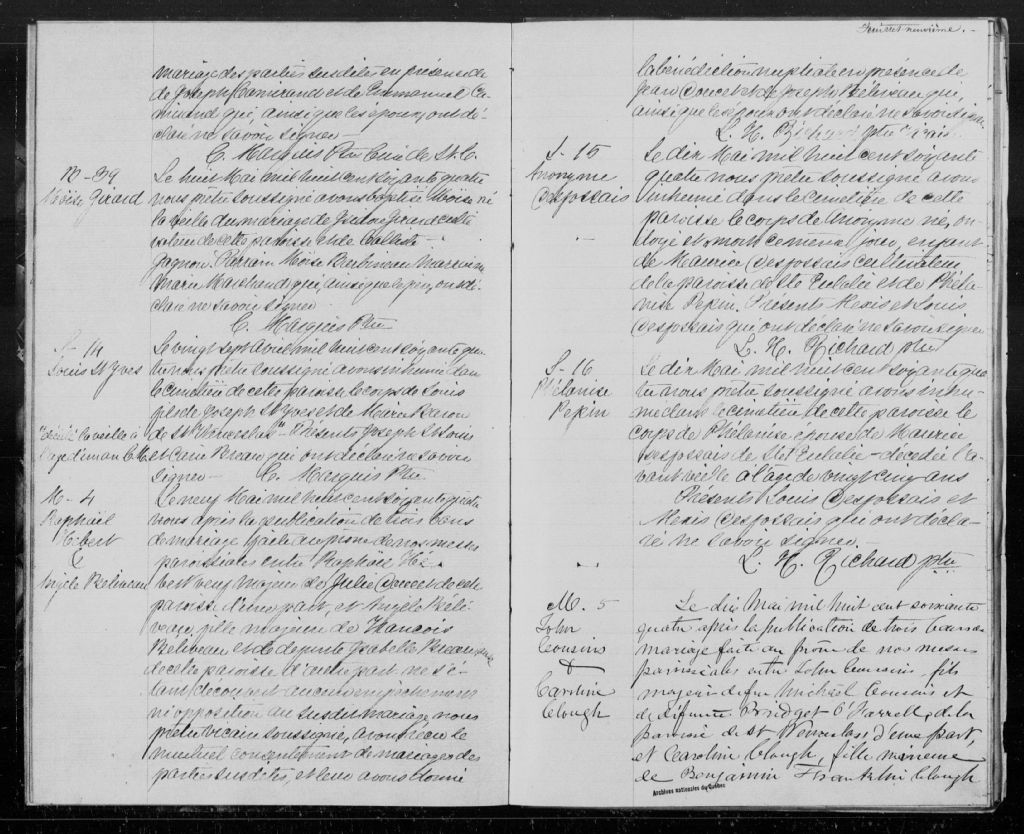 mariage des parties susdites en présence de
de Joseph Camirand et de Emmanuel Ca-
mirand qui, ainsi que les époux, ont dé-
claré ne savoir signer
C. Marquis Ptre Curé de St. C.
B - 39
Moïse Girard
Le huit Mai mil huit cent soixante quatre
nous prêtre soussigné avons baptisé Moïse né
la veille du mariage de Girard culti-
vateur de cette paroisse et de Calliste
Gagnon. Parrain Moïse Berbineau Marraine
Marie Marchand qui, ainsi que le père, ont dé-
claré ne savoir signer
C. Marquis Ptre
S - 14
Louis St Yves
Le vingt sept Avril mil huit cent soixante qua-
tre nous prêtre soussigné avons inhumé dans
le cimetière de cette paroisse le corps de Louis
fils de Joseph St Yves et de Marie
de St Wenceslas Présents Joseph St Louis
décédé la veille à
l'age d'un an
et qui ont déclaré ne savoir
signer - C. Marquis Ptre
M - 4
Raphaël
Hébert
&
Angèle Beliveau
Le neuf Mai mil huit cent soixante quatre
nous après la publication de trois bans
de mariage faite au prone de nos messes
paroissiales entre Raphaël Hé-
bert veuf majeur de Julie Doucet de cette
paroisse d'une part, et Angèle Béli-
veau, fille majeure de François
Beliveau et de defunte Isabelle
de cette paroisse d'autre part ne s'é-
tant découvert aucun empêchement
ni opposition au susdit mariage, nous
prêtre vicaire soussigné, avons reçu le
mutuel consentement de mariage des
parties susdites, et leur avons donné
Feuillet neuvième. -
la bénédiction nuptiale en présence de
Jean Doucet et de Joseph Béliveau qui,
ainsi que les époux ont déclaré ne savoir signer
L. H. Richard ptre vicaire
S - 15
Anonyme
Desfossais
Le dix Mai mil huit cent soixante
quatre nous prêtre soussigné avons
inhumé dans le cimetière de cette
paroisse le corps de Anonyme né, on-
doyé et mort ce même jour, enfant
de Maurice Desfossais cultivateur
de la paroisse de Ste Eulalie et de Phéla-
nise Pepin. Présents Alexis et Louis
Desfossais qui ont déclaré ne savoir signer
L. H. Richard ptre
S - 16
Phélanise
Pepin
Le dix Mai mil huit cent soixante qua-
tre nous prêtre soussigné avons inhu-
mé dans le cimetière de cette paroisse le
corps de Phélanise épouse de Maurice
Desfossais de Ste Eulalie - décédée l'a-
vant veille à l'age de vingt cinq ans
Présents Louis Desfossais et
Alexis Desfossais qui ont décla-
ré ne savoir signer. -
L. H. Richard ptre
M. 5
John
Cousins
&
Caroline
Clough
Le dix Mai mil huit cent soixante
quatre après la publication de trois bans de
mariage faite au prone de nos messes
paroissiales entre John Cousins, fils
majeur de feu Michael Cousins et
de défunte Bridget O'Farrell, de la
paroisse de St Wenceslas d'une part,
et Caroline Clough, fille mineure
de Benjamin Franklin Clough
Archives nationales du Québec